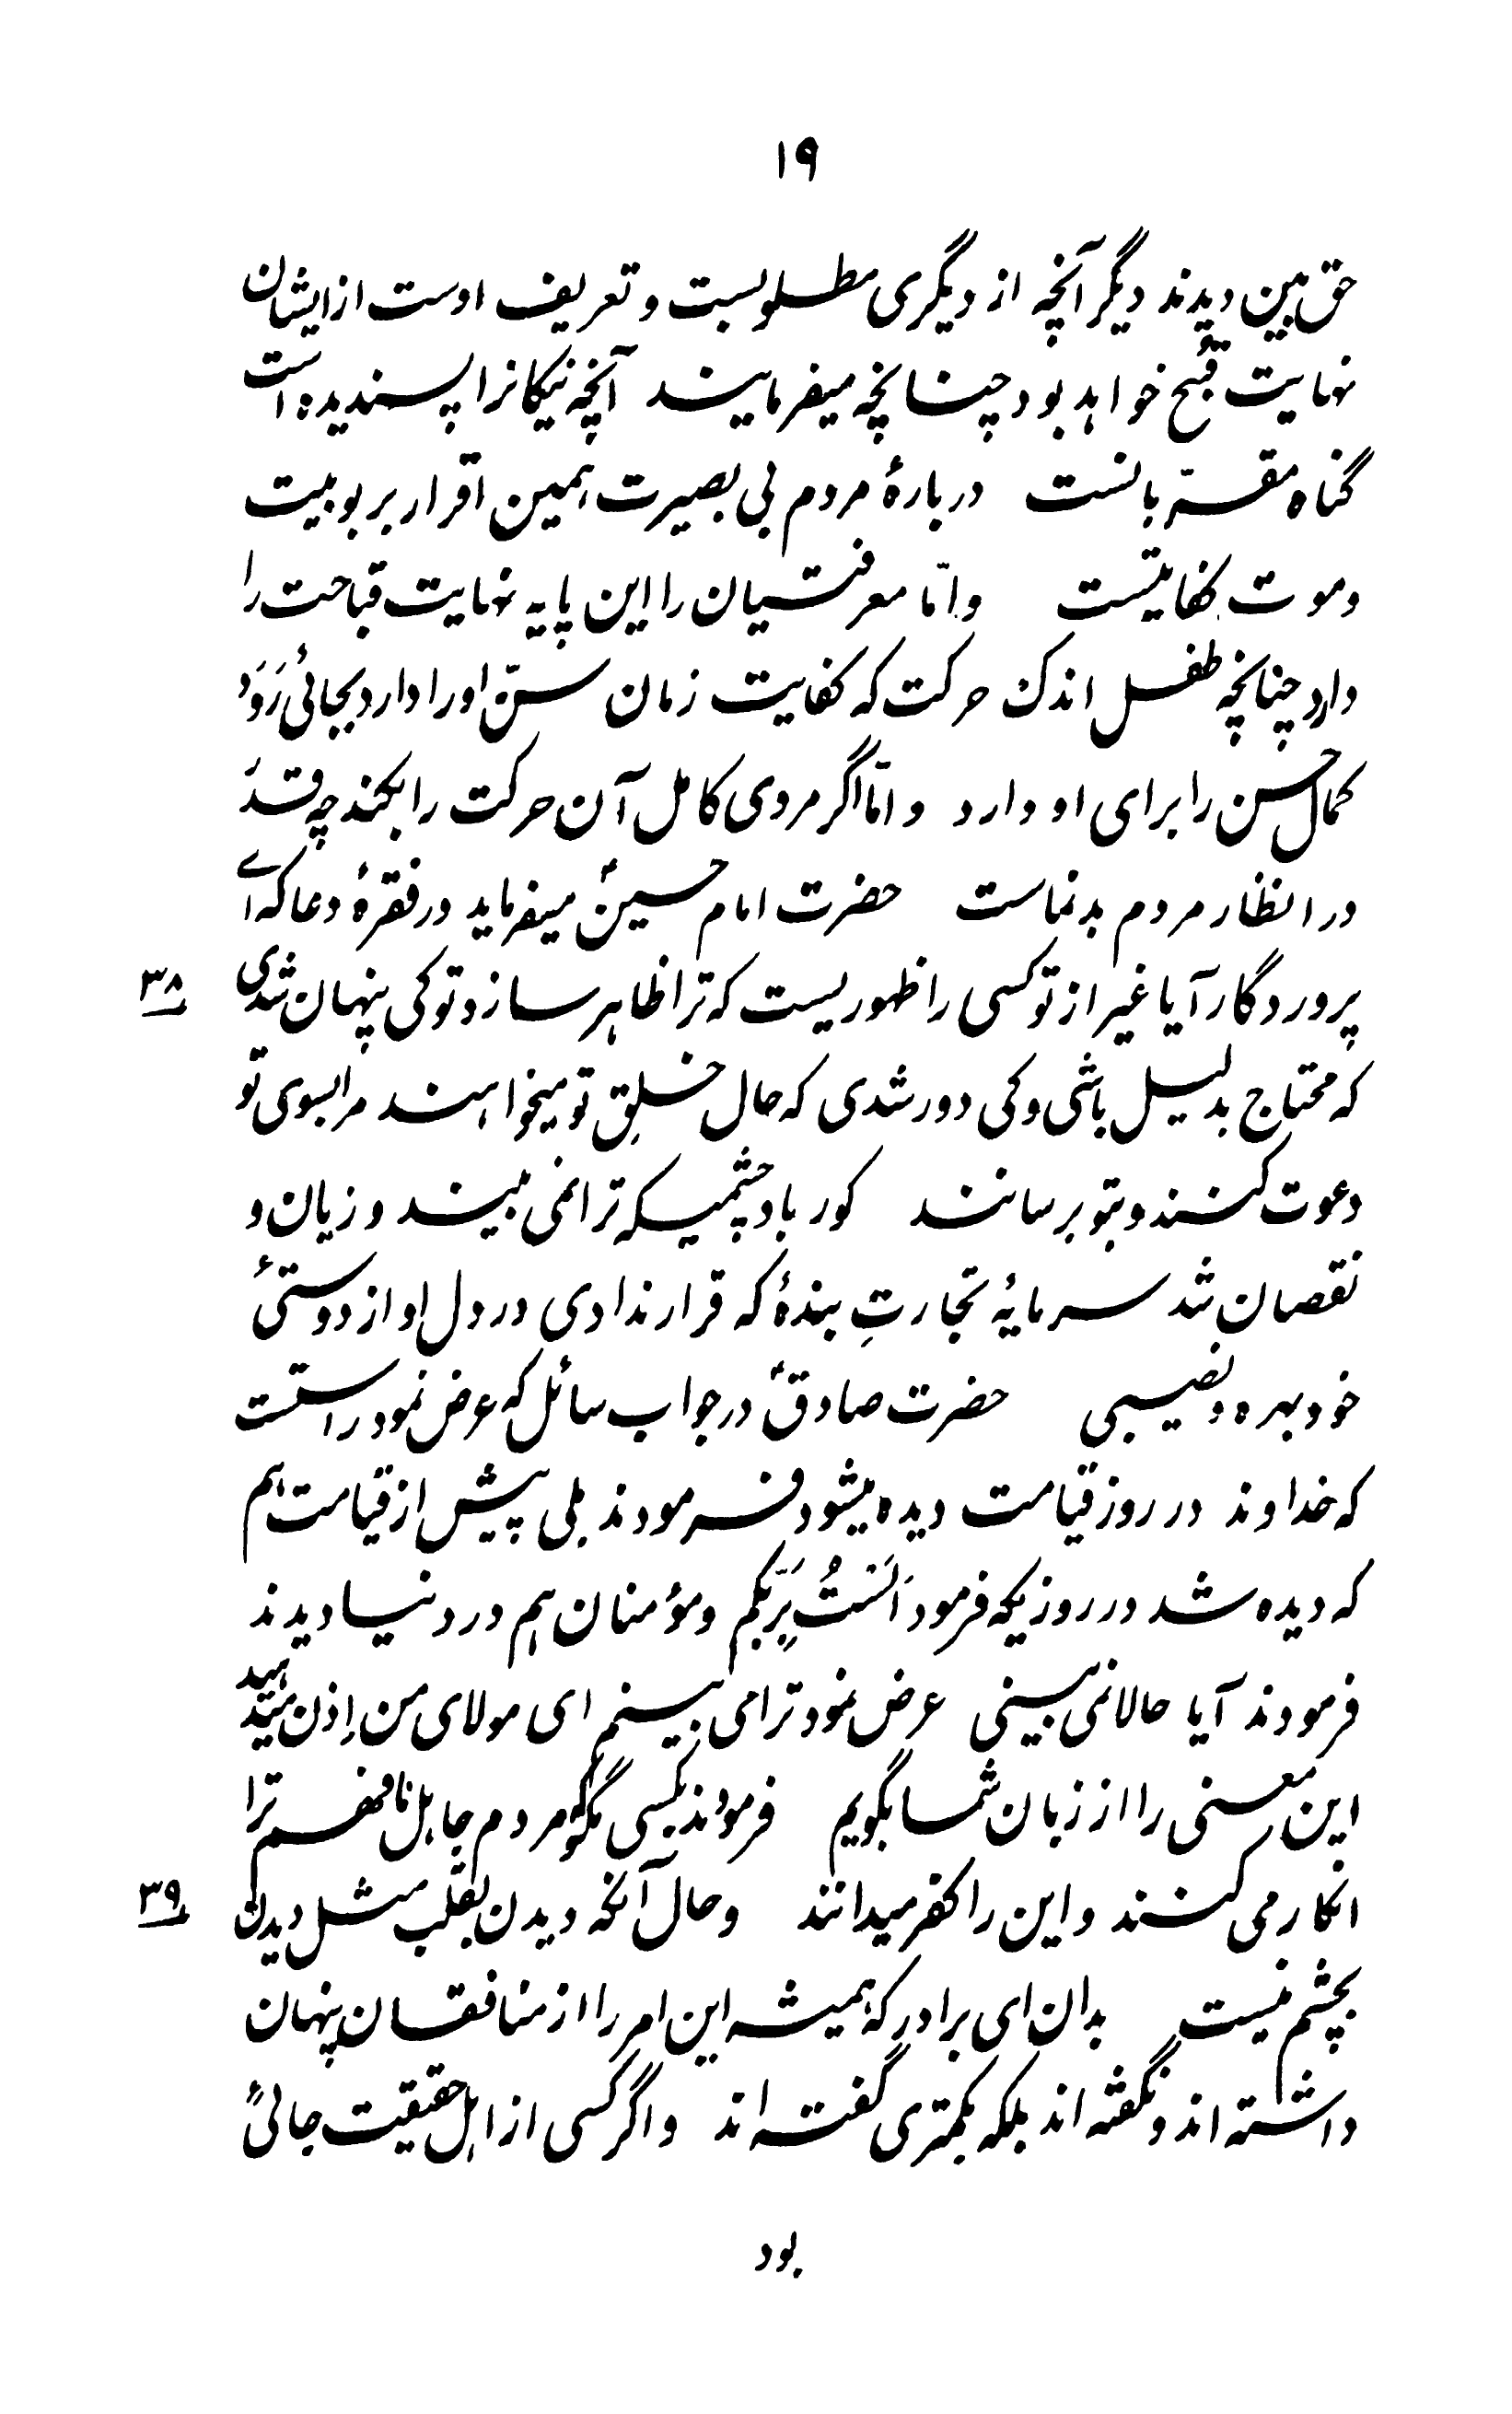 ۱۹
حق بین دیدند دیگر آنچه از دیگری مطلوبست و تعریف اوست از ایشان
نهایت قبح خواهد بود چنانچه میفرمایند آنچه نیکانرا پسندیده است
گناه مقرّبانست دربارهٔ مردم بی بصیرت همین اقرار بربوبیت
و موت کفایتست و امّا معرفتیان را این پایه نهایت قباحت را
دارد چنانچه طفل اندک حرکت که کفایت زمان سنّ او را دارد بجائی رَوَد
کمال حسن را برای او دارد و امّا اگر مردی کامل آن حرکت را بکند چه قدر
در انظار مردم بدنماست حضرت امام حسینؑ میفرماید در فقرهٔ دعا که اے
پروردگار آیا غیر از تو کسی را ظهوریست که ترا ظاهر سازد تو کی پنهان شدی
۳۸
که محتاج بدلیل باشی و کی دور شدی که حال خلقِ تو میخواهند مرا بسوی تو
دعوت کنند و بتو برسانند کور باد چشمیکه ترا نمی بیند و زیان و
نقصان شد سرمایهٔ تجارتِ بندهٔ که قرار ندادی در دل او از دوستیٔ
خود بهره و نصیبی حضرت صادقؑ در جواب سائل که عرض نمود راستست
که خداوند در روز قیامت دیده میشود فرمودند بلی پیش از قیامت هم
که دیده شد در روزیکه فرمود اَلَستُ بِرَبّکم و مؤمنان هم در دنیا دیدند
فرمودند آیا حالا نمی بینی عرض نمود ترا می بینم ای مولای من اِذن میدهید
این معنی را از زبان شما بگویم فرمودند بکسی مگو که مردم جاهل نافهم ترا
انکار می کنند و این را کفر میدانند و حال آنکه دیدن بقلب مثل دیدن
۳۹
بچشم نیست بدان ای برادر که همیشه این امر را از منافقان پنهان
داشته اند و نگفته اند بلکه بکمتری گفته اند و اگر کسی از اهل حقیقت جائی
بود